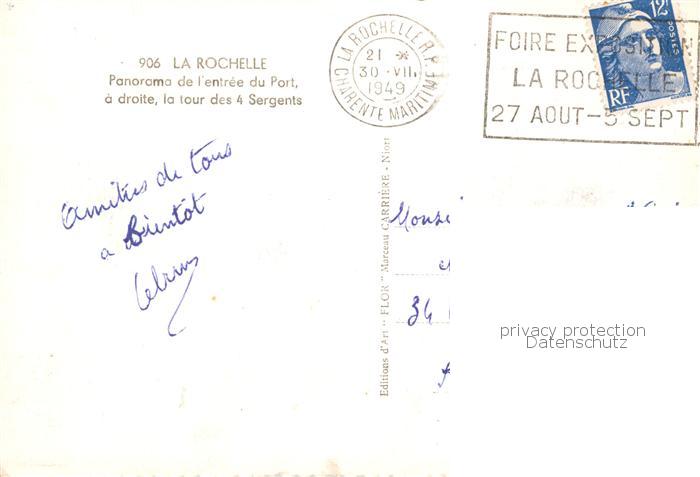 906 LA ROCHELLE
Panorama de l'entrée du Port,
à droite, la tour des 4 Sergents
LA ROCHELLE R.P.
21 *
30 - VII.
1949
CHARENTE MARITIME
FOIRE EXPOSITION
LA ROCHELLE
27 AOUT - 5 SEPT
12F
RF
POSTES
Amitiés de tous
a Bientôt
Editions d'Art " FLOR " Marceau CARRIÈRE - Niort
Monsi
34
privacy protection
Datenschutz